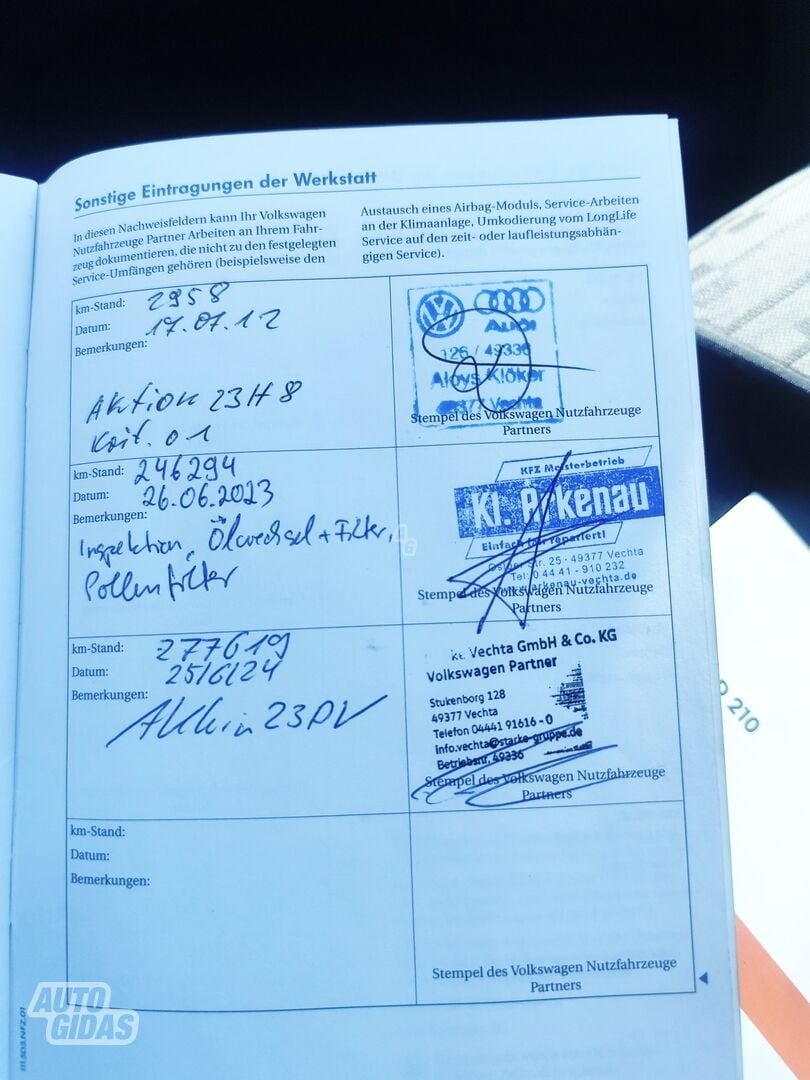 Sonstige Eintragungen der Werkstatt
In diesen Nachweisfeldern kann Ihr Volkswagen
Nutzfahrzeuge Partner Arbeiten an Ihrem Fahr-
zeug dokumentieren, die nicht zu den festgelegten
Service-Umfängen gehören (beispielsweise den
Austausch eines Airbag-Moduls, Service-Arbeiten
an der Klimaanlage, Umkodierung vom LongLife
Service auf den zeit- oder laufleistungsabhän-
gigen Service).
km-Stand: 2958
Datum: 17.07.12
Bemerkungen:
Aktion 23H8
01
AUDI
126 / 49336
Aloys Klöker
49377 Vechta
Stempel des Volkswagen Nutzfahrzeuge
Partners
km-Stand: 246294
Datum: 26.06.2023
Bemerkungen:
Inspektion, Ölwechsel + Filter,
Pollenfilter
KFZ Meisterbetrieb
Kl. Arkenau
Einfach gut repariert!
Str. 25 · 49377 Vechta
Tel: 0 44 41 - 910 232
www.arkenau-vechta.de
Stempel des Volkswagen Nutzfahrzeuge
Partners
km-Stand: 277619
Datum: 25/6/24
Bemerkungen:
23DV
Vechta GmbH & Co. KG
Volkswagen Partner
Stukenborg 128
49377 Vechta
Telefon 04441 91616 - 0
Info.vechta@starke-gruppe.de
Betriebsnr. 49336
Stempel des Volkswagen Nutzfahrzeuge
Partners
km-Stand:
Datum:
Bemerkungen:
Stempel des Volkswagen Nutzfahrzeuge
Partners
210
AUTO
GIDAS